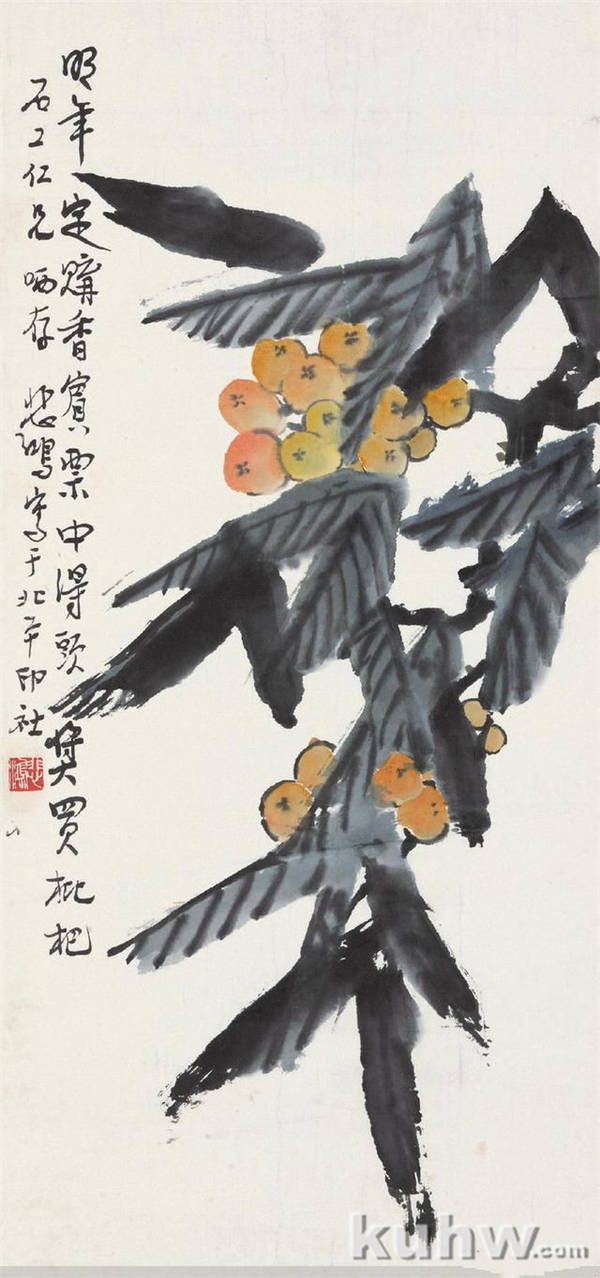 明年定購香賓票中得頭獎買枇杷
石工仁兄哂存 悲鴻寫于北平印社
悲鴻
kuhw.com